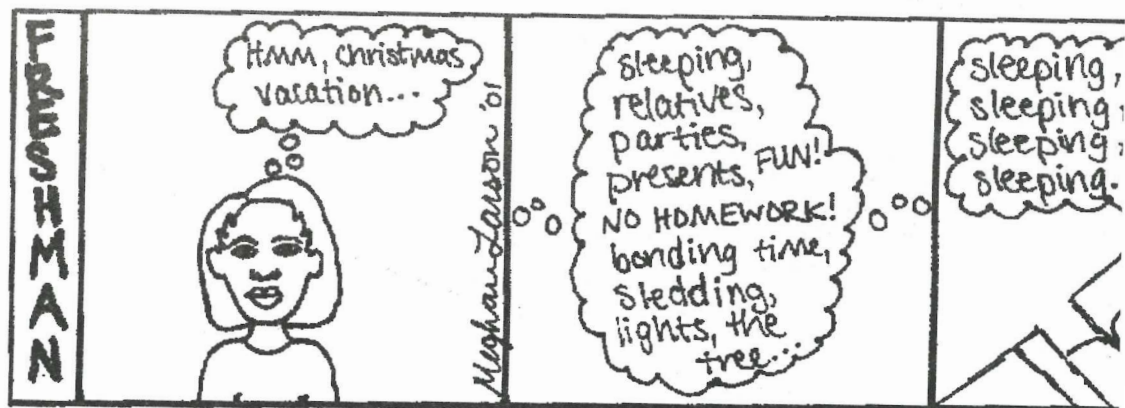 FRESHMAN
Hmm, christmas
vacation...
Meghan Larson '01
sleeping,
relatives,
parties,
presents, FUN!
NO HOMEWORK!
bonding time,
sledding,
lights, the
tree...
sleeping,
sleeping,
sleeping,
sleeping.